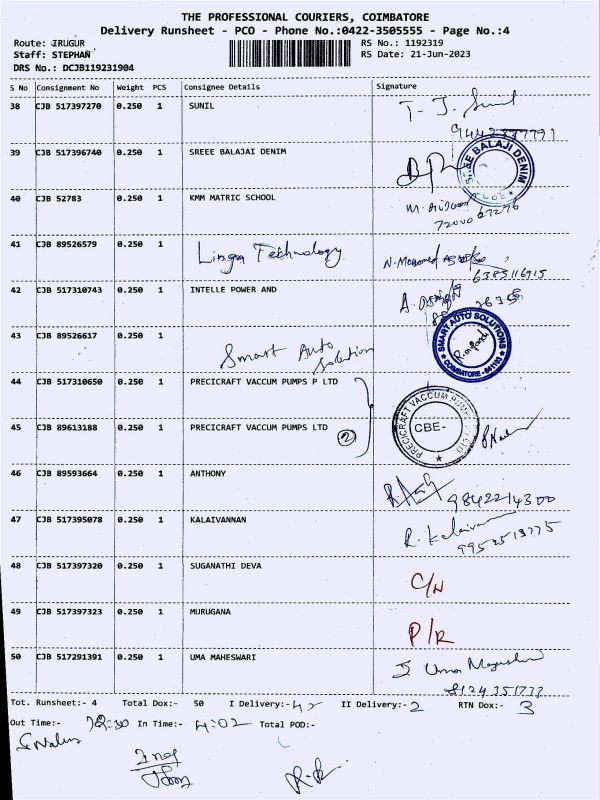 THE PROFESSIONAL COURIERS, COIMBATORE
Delivery Runsheet - PCO - Phone No.:0422-3505555 - Page No.:4
Route: IRUGUR RS No.: 1192319
Staff: STEPHAN RS Date: 21-Jun-2023
DRS No.: DCJB119231904
S No Consignment No Weight PCS Consignee Details Signature
38 CJB 517397270 0.250 1 SUNIL
39 CJB 517396740 0.250 1 SREEE BALAJAI DENIM
BALAJI DENIM
40 CJB 52783 0.250 1 KMM MATRIC SCHOOL
7200067296
41 CJB 89526579 0.250 1 Linga Technology
6385116915
42 CJB 517310743 0.250 1 INTELLE POWER AND
43 CJB 89526617 0.250 1 Smart Auto Solution
SMART AUTO SOLUTIONS COIMBATORE
44 CJB 517310650 0.250 1 PRECICRAFT VACCUM PUMPS P LTD
45 CJB 89613188 0.250 1 PRECICRAFT VACCUM PUMPS LTD 2
PRECICRAFT VACCUM CBE-
46 CJB 89593664 0.250 1 ANTHONY
9842214300
47 CJB 517395078 0.250 1 KALAIVANNAN R. Kalaivannan
48 CJB 517397320 0.250 1 SUGANATHI DEVA C/N
49 CJB 517397323 0.250 1 MURUGANA P/R
50 CJB 517291391 0.250 1 UMA MAHESWARI
Tot. Runsheet:- 4 Total Dox:- 50 I Delivery:- II Delivery:- 2 RTN Dox:- 3
Out Time:- In Time:- 4:02 Total POD:-